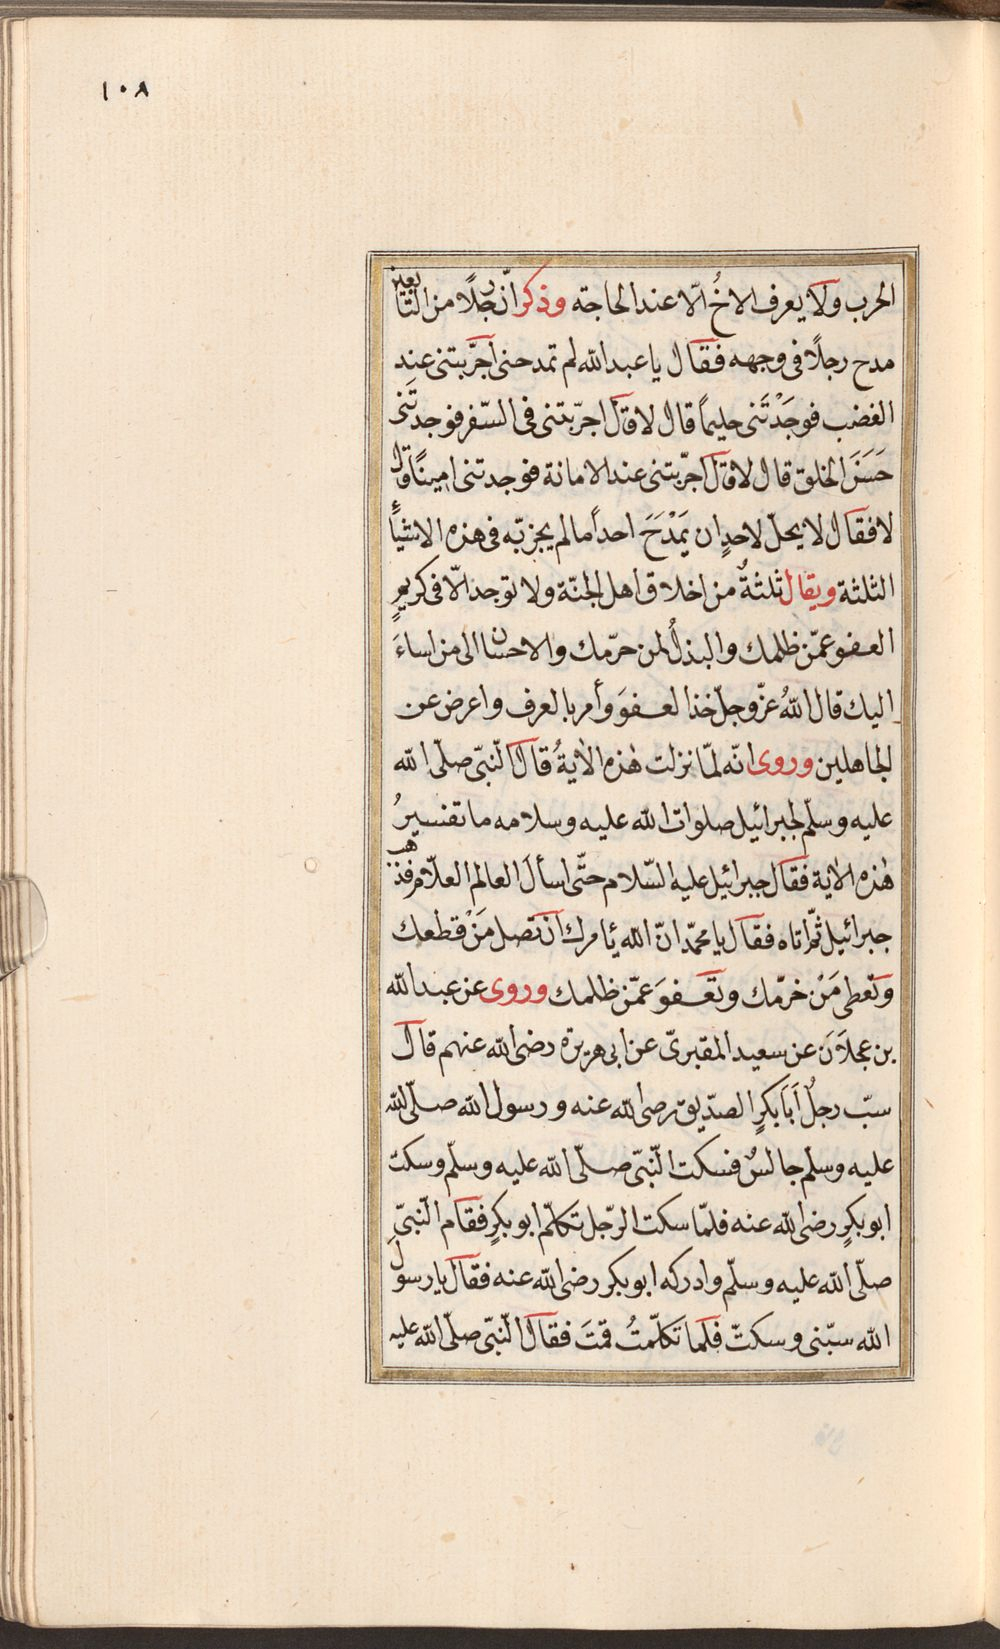 ١٠٨
الحرب ولا يعرف الاخُ الّا عند الحاجة وذكر انّ رجلًا من التّابعين
مدح رجلًا فى وجهه فقال يا عبد الله لم تمدحنى اجرّبتنى عند
الغضب فوجَدْتَنى حليمًا قال لا قال اجرّبتنى فى السّفر فوجدتَنى
حَسَنَ الخلق قال لا قال اجرّبتنى عند الامانة فوجدتنى امينًا قال
لا فقال لا يحلّ لاحدٍ ان يَمْدَحَ احداً مالم يجربّه فى هذه الاشيأِ
الثلثة ويقال ثلثةٌ من اخلاق اهل الجنّة ولا توجد الّا فى كريمٍ
العفو عمّن ظلمك والبذلُ لمن حرّمك والاحسان الى من اساءَ
اليك قال اللهُ عزّ وجلّ خذا لعفوَ وأمر بالعرف واعرض عن
الجاهلين وروى انّه لمّا نزلت هٰذه الاٰيةُ قال النّبّى صلّى الله
عليه وسلّم لجبرائيل صلوات الله عليه وسلامه ما تفسيرُ
هٰذه الاٰية فقال جبرائيل عليه السّلام حتّى اسألَ العالم العلّام فذهب
جبرائيل ثمّ اتاه فقال يا محمّد انّ الله يأمرك ان تصل مَنْ قطعك
وتعطى مَنْ خرّمك وتعفوَ عمّن ظلمك وروى عن عبد الله
بن عجلاَنَ عن سعيد المقبرىّ عن ابى هريرة رضى الله عنهم قال
سبّ رجلٌ اَبَا بكرٍ الصدّيق رضى الله عنه ورسول الله صلّى الله
عليه وسلّم جالسٌ فسكت النّبّى صلّى الله عليه وسلّم وسكت
ابو بكرٍ رضى الله عنه فلمّا سكت الرّجل تكلّم ابو بكرٍ فقام النّبىّ
صلّى الله عليه وسلّم وادركه ابو بكر رضى الله عنه فقال يا رسولَ
الله سبّنى وسكتّ فلما تكلّمتُ قمتَ فقال النّبّى صلّى الله عليه